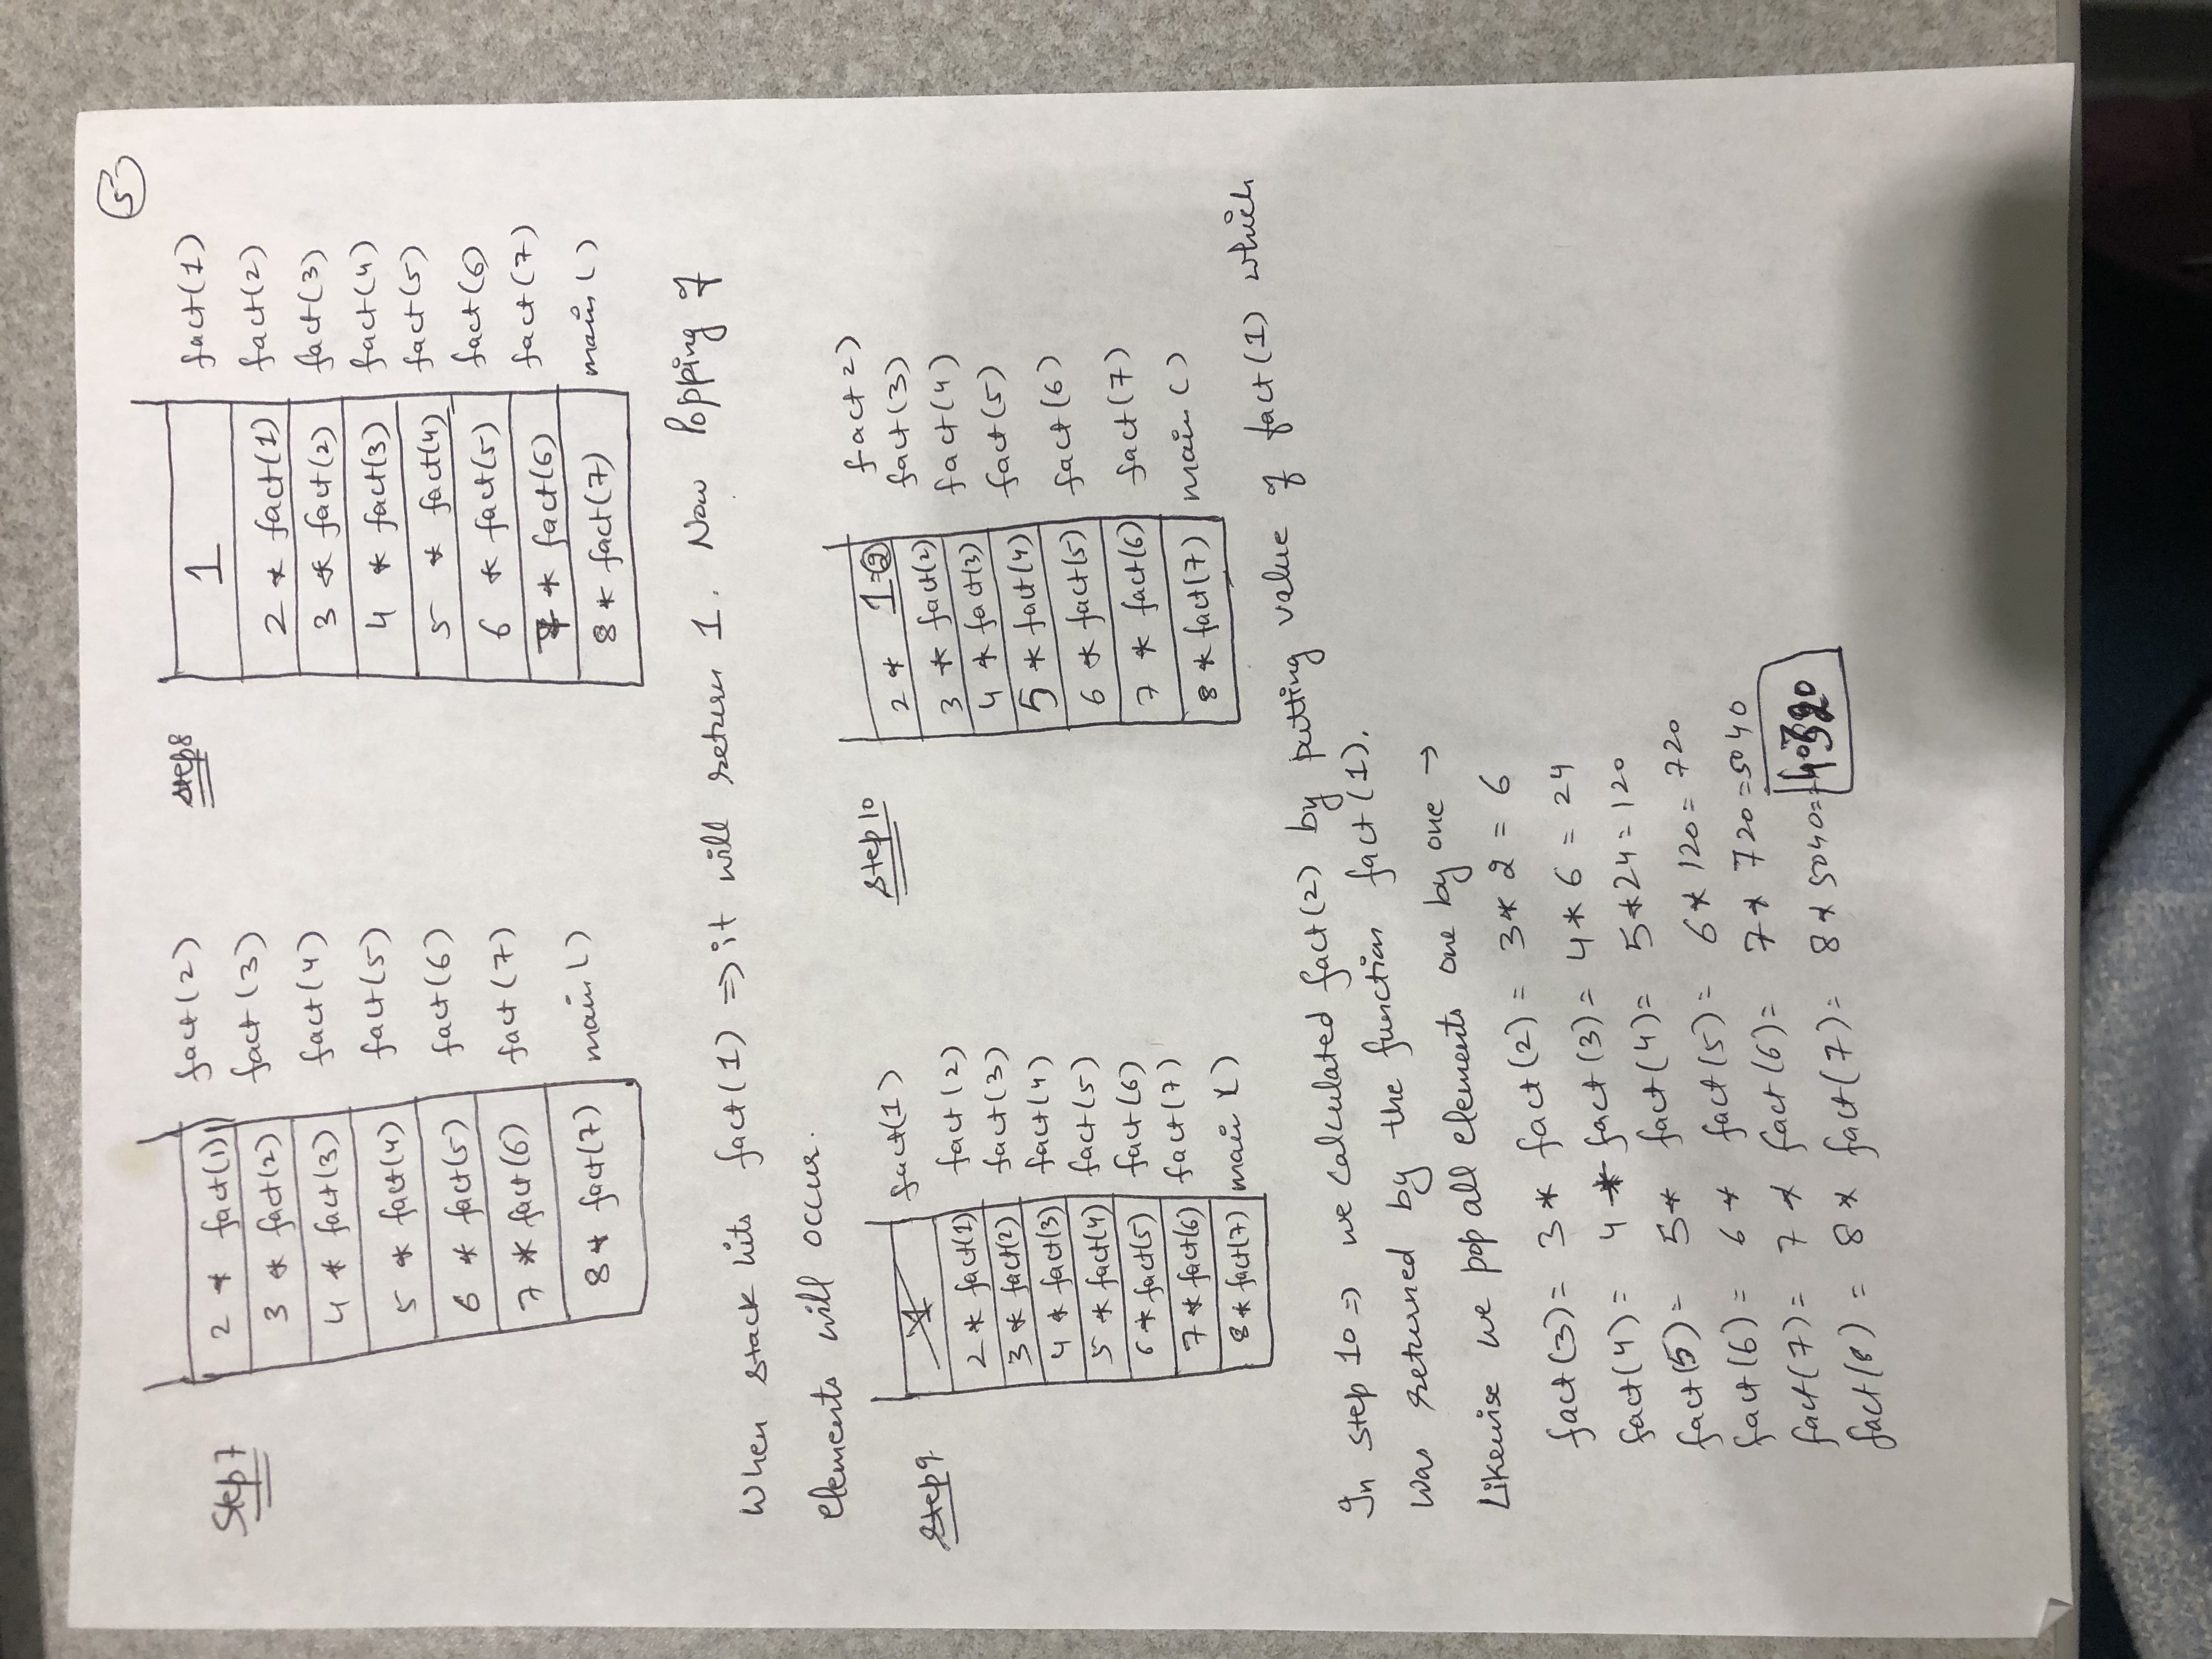 5
Step 7
fact(2)
2 * fact(1)
fact(3)
3 * fact(2)
fact(4)
4 * fact(3)
fact(5)
5 * fact(4)
fact(6)
6 * fact(5)
fact(7)
7 * fact(6)
8 * fact(7) main()
step 8
1 fact(1)
2 * fact(1) fact(2)
3 * fact(2) fact(3)
4 * fact(3) fact(4)
5 * fact(4) fact(5)
6 * fact(5) fact(6)
7 * fact(6) fact(7)
8 * fact(7) main()
When stack hits fact(1) => it will return 1. Now Popping of
elements will occur.
step 9
1 fact(1)
2 * fact(1) fact(2)
3 * fact(2) fact(3)
4 * fact(3) fact(4)
5 * fact(4) fact(5)
6 * fact(5) fact(6)
7 * fact(6) fact(7)
8 * fact(7) main()
step 10
2 * 1=2 fact2)
3 * fact(2) fact(3)
4 * fact(3) fact(4)
5 * fact(4) fact(5)
6 * fact(5) fact(6)
7 * fact(6) fact(7)
8 * fact(7) main()
In step 10 => we calculated fact(2) by putting value of fact(1) which
was returned by the function fact(1).
Likewise we pop all elements one by one →
fact(3) = 3 * fact(2) = 3 * 2 = 6
fact(4) = 4 * fact(3) = 4 * 6 = 24
fact(5) = 5 * fact(4) = 5 * 24 = 120
fact(6) = 6 * fact(5) = 6 * 120 = 720
fact(7) = 7 * fact(6) = 7 * 720 = 5040
fact(8) = 8 * fact(7) = 8 * 5040 = 40320